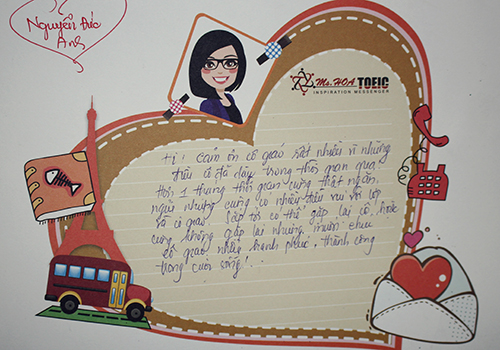 Nguyễn Đức
Anh
Ms. HOA TOEIC
INSPIRATION MESSENGER
Hi! Cảm ơn cô giáo rất nhiều vì những
điều cô đã dạy trong thời gian qua
Hơn 1 tháng thời gian cũng thật ngắn
ngủi nhưng cũng có nhiều điều vui với lớp
và cô giáo. Sắp tới có thể gặp lại cô, hoặc
cũng không gặp lại nhưng muốn chúc
cô giáo nhiều hạnh phúc, thành công
trong cuộc sống!